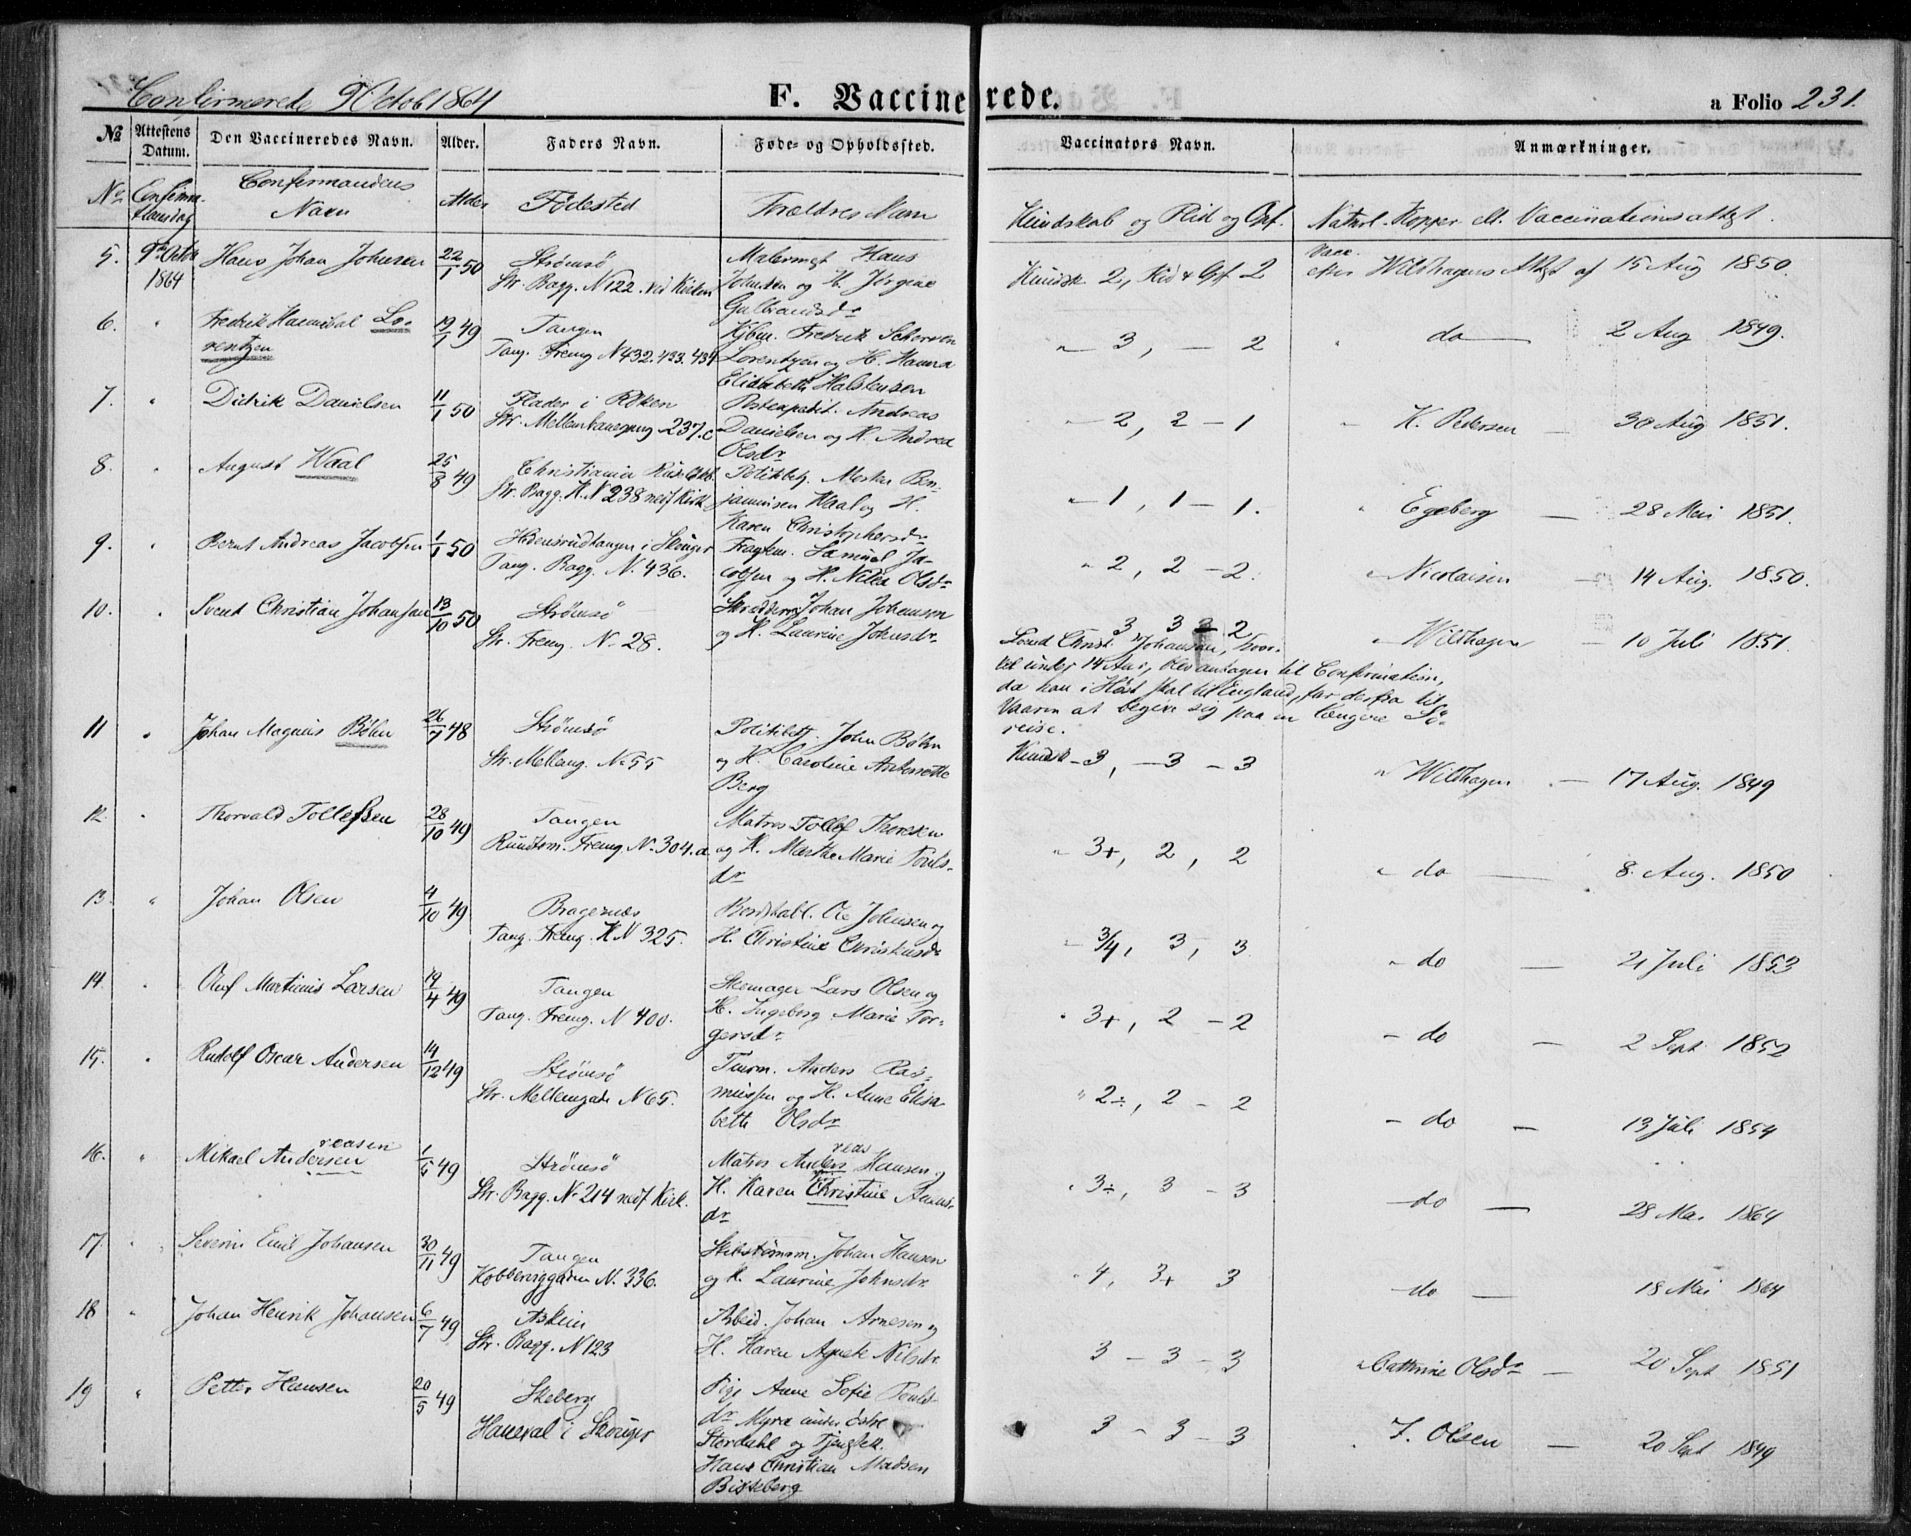 Confirmerede 9 Octob 1864
F. Vaccinerede.
a Folio 231.
№ Attestens Datum. Den Vaccineredes Navn. Alder. Faders Navn. Føde- og Opholdssted. Vaccinators Navn. Anmærkninger.
No Confirmandens Navn Alder Födested Forældres Navn Kundskab og Flid og Opf. Naturl. Kopper ell. Vaccinationsattest.
5. 9de Octbr 1864 Hans Johan Johnsen 22/1 50 Strömsö Malermst Hans
Str. Bagg. N 122. ved Kirken Johnsen og H. Jörgine
Gulbrandsdr
Kundsk 2, Flid & Opf. 2 Vacc. efter Wildhagens Attest af 15 Aug 1850.
6. " Fredrik Hannibal Lo- 19/1 49 Tangen Kjbm. Fredrik
rentzen Tang. Freng N 432. 433. 434 Lorentzen og H. Hanna
Elisabeth Halstensen
" 3, — 2 " do 2 Aug 1849.
7. " Didrik Danielsen 11/1 50 i Röken Postexpedit. Andreas
Str. 237.c Danielsen og H. Andrea
Olsdr
" 2, 2 - 1 " K. Pedersen — 30 Aug 1851.
8. " August Waal 25/8 49 Christiania Politibetj. Ben-
Str. Bagg. H. N 238 nedf Kirk. jaminsen Waal og H.
Karen Christophersdr
" 1, 1 - 1. " Egeberg — 28 Mai 1851.
9. " Bernt Andreas Jacobsen 1/1 50 i Skouger Fragtm. Samuel Ja-
Tang. Bagg. N. 436. cobsen og H. Olsdr
" 2, 2 - 2. " Nicolaisen — 14 Aug. 1850.
10. " Svend Christian Johansen 13/10 50 Strömsö Johan Johansen
Str. Freng. N. 28. og H. Laurine Johnsdr
3 3 2 " Wildhagen — 10 Juli 1851.
Svend Christ. Johansen, hvor-
vel under 14 Aar, blev antagen til Confirmation,
da han i Höst skal til England, for derfra til
Vaaren at begive sig paa en længere Sö-
reise.
11 " Johan Magnus Böhn 26/7 48 Strömsö Politibetj. John Böhn
Str. Melleng. N. 55 og H. Caroline Antonette
Berg
Kundsk - 3, - 3 - 3 " Wildhagen — 17 Aug. 1849
12. " Thorvald Tollefsen 28/10 49 Tangen Matros Tollef Thoresen
Rundtom. Freng N. 304.a og H. Marthe Marie Pouls-
dr
" 3+, 2, 2 " do — 8. Aug. 1850
13. " Johan Olsen 4/10 49 Bragernæs Ole Johnsen og
Tang. Freng. H N 325. H. Christine
" 3/4, 3, 3 " do — 21 Juli 1853
14. " Oluf Martinius Larsen 19/4 49 Tangen Skomager Lars Olsen og
Tang. Freng. N 400. H. Ingeborg Marie Tor-
gersdr
" 3+, 2 - 2 - do — 2 Sept 1852
15. " Rudolf Oscar Andersen 14/12 49 Strömsö Tiurm. Anders Ras-
Str. Mellemgade N 65. mussen og H. Anne Elisa-
beth Olsdr
" 2÷, 2 - 2 - do — 13 Juli 1854
16. " Mikael Andersen reasen 1/5 49 Strömsö Matros Anders reas Hansen og
Str. Bagg. N. 214 nedf Kirk. H. Karen Christine
dr
" 3÷, 3 - 3 - do — 28 Mai 1864
17. " Severin Emil Johansen 30/11 49 Tangen Skibstömm. Johan Hansen
N. 336. og H. Laurine Johnsdr
" 4, 3+ 3 do — 18 Mai 1864
18 " Johan Henrik Johansen 6/7 49 Askim Arbeid. Johan Arnesen og
Str. Bagg. N 123 H. Karen Agnete Nilsdr
3 - 3 - 3 " Cathrine Olsdr — 20 Sept 1851
19 " Petter Hansen 20/5 49 Skeberg Pige Anne Sofie Pouls-
Haneval i Skouger dr Myra under östre
Stordahl og
Hans Christian Madsen
Bisseberg
3 - 3 - 3 " J. Olsen — 20 Sept 1849